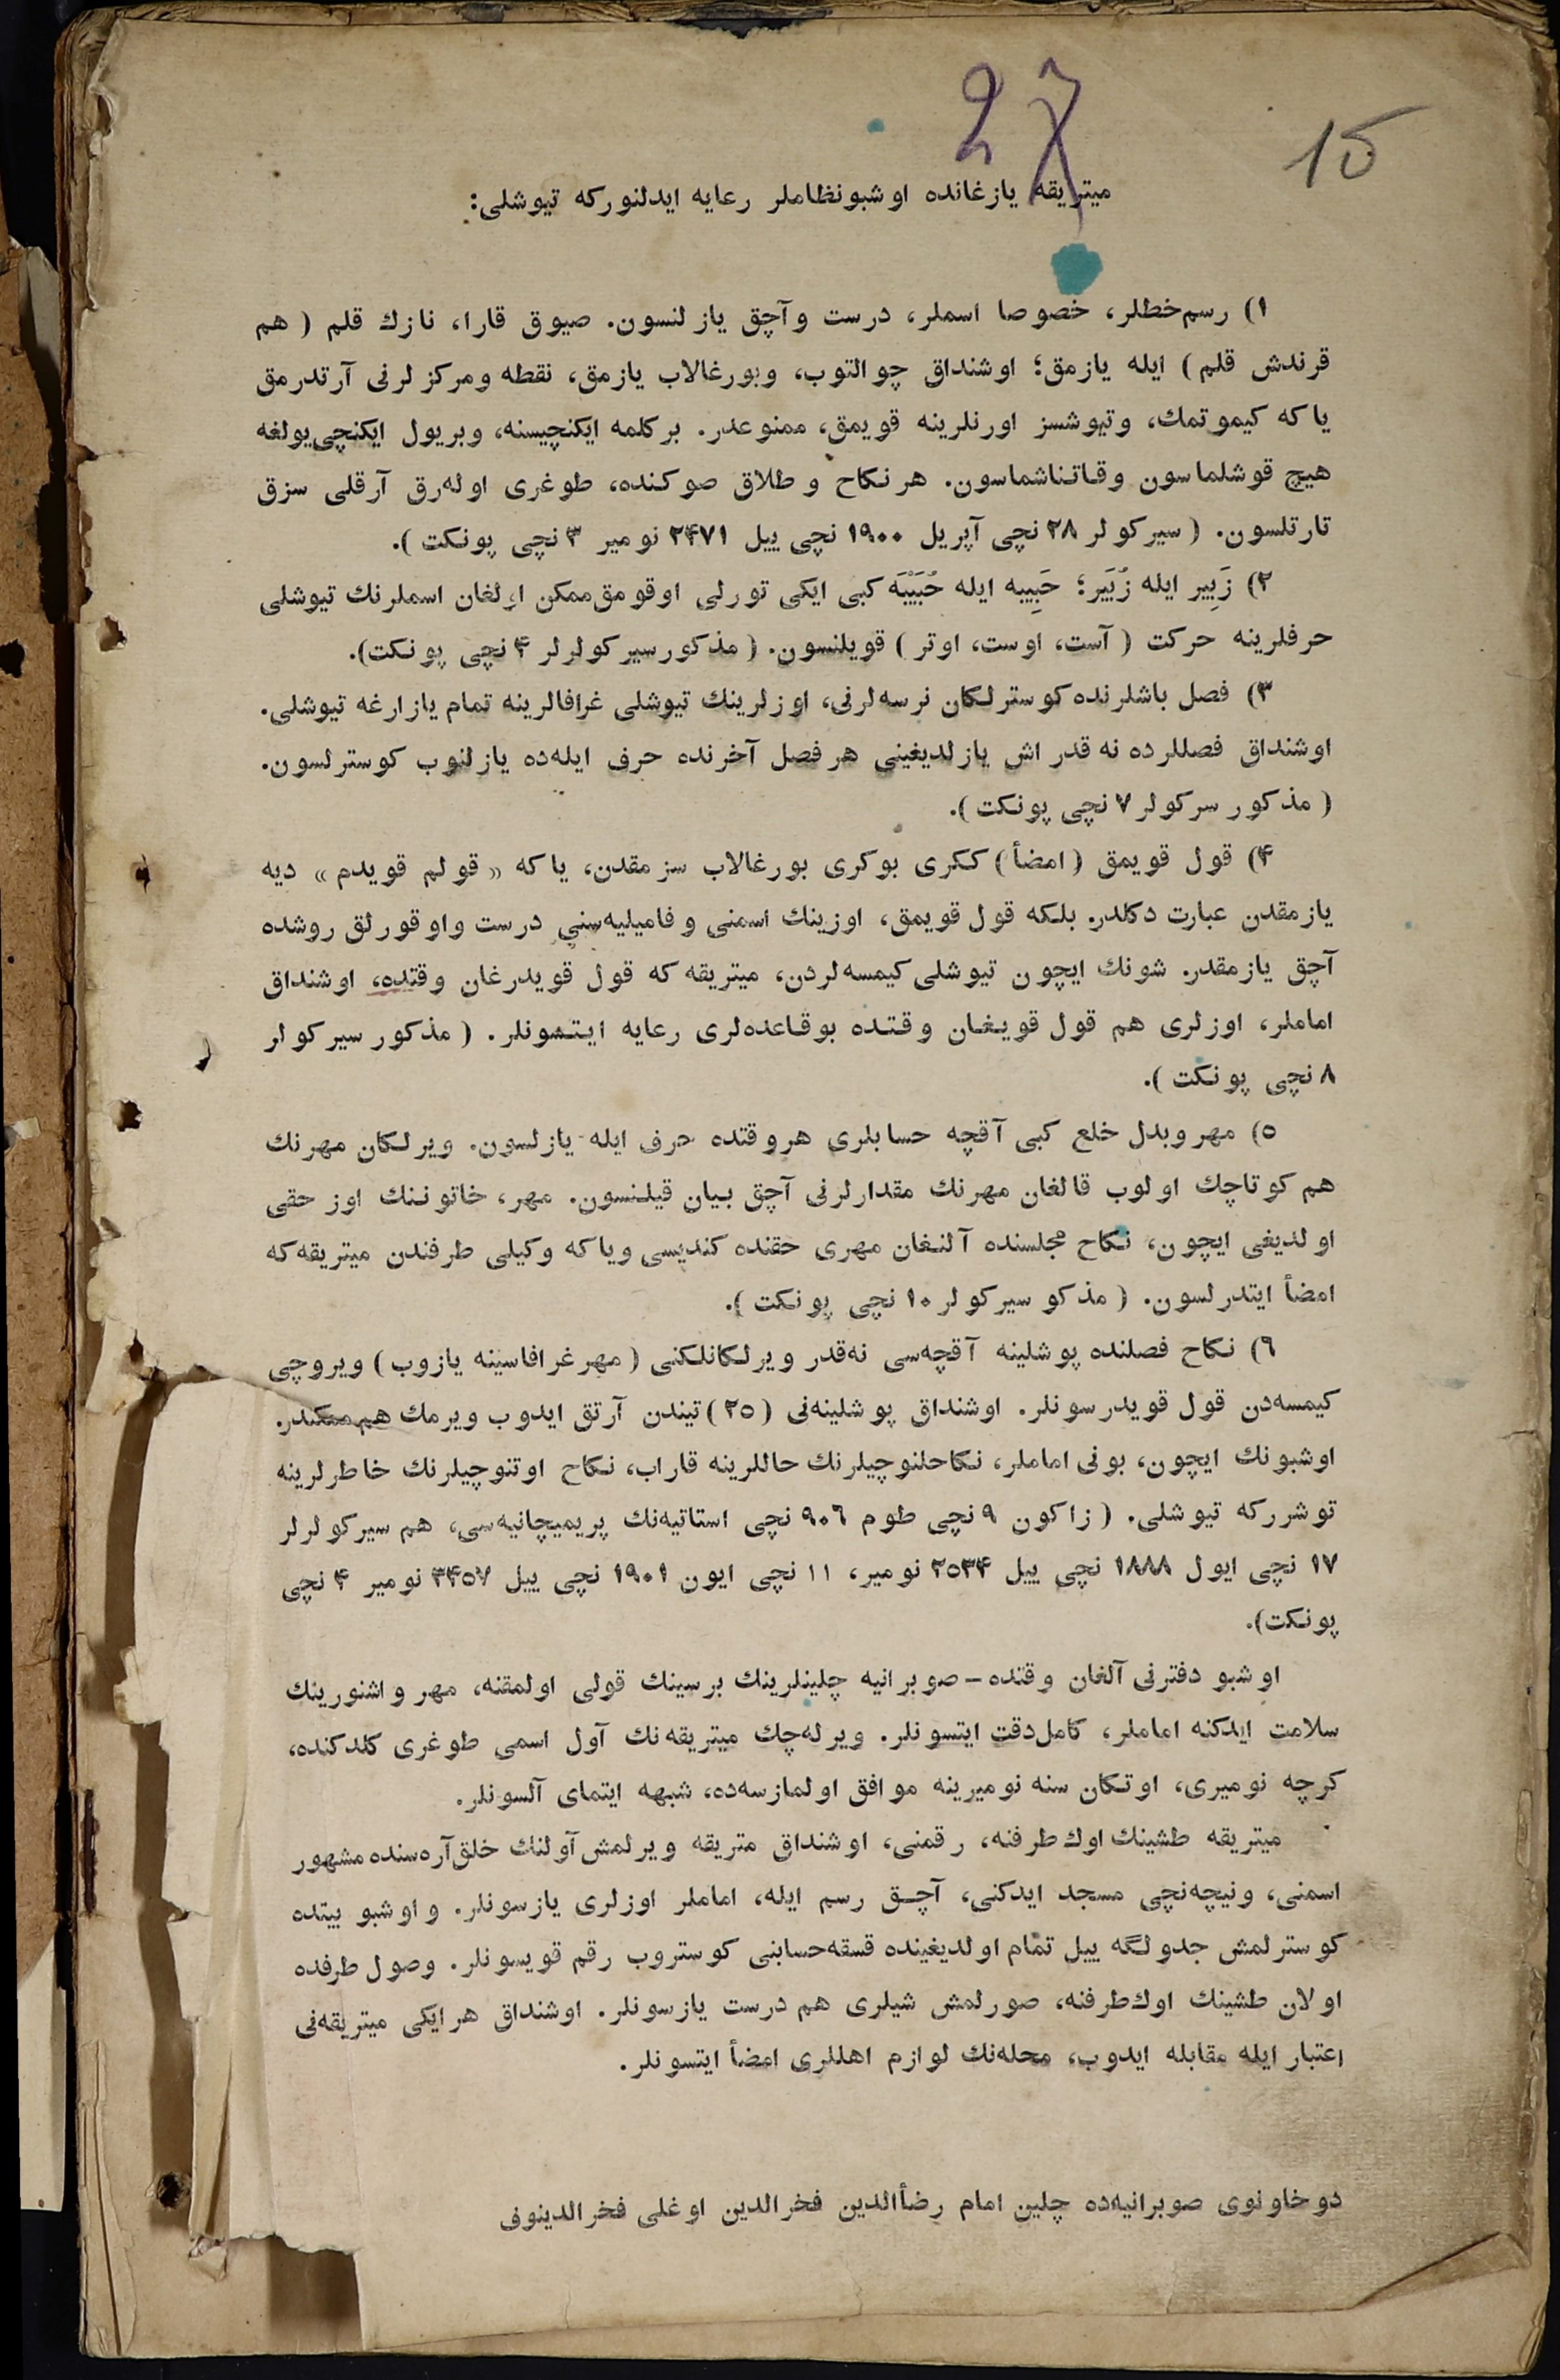 27
15
میتریقه یازغانده اوشبونظاملر رعایه ایدلنورکه تیوشلی:
۱) رسم‌خطلر، خصوصا اسملر، درست وآچق یازلنسون. صیوق قارا، نازك قلم ( هم
قرندش قلم ) ایله یازمق؛ اوشنداق چوالتوب، وبورغالاب یازمق، نقطه ومرکزلرنی آرتدرمق
یاکه کیموتمك، وتیوشسز اورنلرینه قویمق، ممنوعدر. برکلمه ایکنچیسنه، وبریول ایکنچی‌یولغه
هیچ قوشلماسون وقاتناشماسون. هرنکاح وطلاق صوکنده، طوغری اوله‌رق آرقلی سزق
تارتلسون. ( سیرکولر ۲۸ نچی آپریل ۱۹۰۰ نچی ییل ۲۴۷۱ نومیر ۳ نچی پونکت ).
۲) زَبِیر ایله زُبَیر؛ حَبِیبه ایله حُبَیْبَه کبی ایکی تورلی اوقومق‌ممکن اولغان اسملرنك تیوشلی
حرفلرینه حرکت ( آست، اوست، اوتر ) قویلنسون. ( مذکورسیرکولرلر ۴ نچی پونکت).
۳) فصل باشلرنده‌کوسترلکان نرسه‌لرنی، اوزلرینك تیوشلی غرافالرینه تمام یازارغه تیوشلی.
اوشنداق فصللرده نه قدر اش یازلدیغینی هرفصل آخرنده حرف ایله‌ده یازلنوب کوسترلسون.
( مذکور سرکولر ۷ نچی پونکت ).
۴) قول قویمق ( امضأ ) ککری بوکری بورغالاب سزمقدن، یاکه « قولم قویدم » دیه
یازمقدن عبارت دکلدر. بلکه قول قویمق، اوزینك اسمنی وفامیلیه‌سنی درست واوقورلق روشده
آچق یازمقدر. شونك ایچون تیوشلی کیمسه‌لردن، میتریقه‌که قول قویدرغان وقتده، اوشنداق
اماملر، اوزلری هم قول قویغان وقتده بوقاعده‌لری رعایه ایتسونلر. ( مذکور سیرکولر
۸ نچی پونکت ).
۵) مهر وبدل خلع کبی آقچه حسابلری هروقتده حرف ایله یازلسون. ویرلکان مهرنك
هم کوتاچك اولوب قالغان مهرنك مقدارلرنی آچق بیان قیلنسون. مهر، خاتوننك اوز حقی
اولدیغی ایچون، نکاح مجلسنده آلنغان مهری حقنده کندیسی ویاکه وکیلی طرفندن میتریقه‌که
امضأ ایتدرلسون. ( مذکو سیرکولر ۱۰ نچی پونکت ).
۶) نکاح فصلنده پوشلینه آقچه‌سی نه‌قدر ویرلکانلکنی ( مهرغرافاسینه یازوب ) ویروچی
کیمسه‌دن قول قویدرسونلر. اوشنداق پوشلینه‌نی (۲۵) تیندن آرتق ایدوب ویرمك هم‌ممکندر.
اوشبونك ایچون، بونی اماملر، نکاحلنوچیلرنك حاللرینه قاراب، نکاح اوتنوچیلرنك خاطرلرینه
توشررکه تیوشلی. ( زاکون ۹ نچی طوم ۹۰۶ نچی استاتیه‌نك پریمیچانیه‌سی، هم سیرکولرلر
۱۷ نچی ایول ۱۸۸۸ نچی ییل ۲۵۳۴ نومیر، ۱۱ نچی ایون ۱۹۰۱ نچی ییل ۳۴۵۷ نومیر ۴ نچی
پونکت).
اوشبو دفترنی آلغان وقتده – صوبرانیه چلینلرینك برسینك قولی اولمقنه، مهر واشنورینك
سلامت ایدکنه اماملر، کامل‌دقت ایتسونلر. ویرله‌چك میتریقه‌نك آول اسمی طوغری کلدکنده،
کرچه نومیری، اوتکان سنه نومیرینه موافق اولمازسه‌ده، شبهه ایتمای آلسونلر.
میتریقه طشینك اوك‌طرفنه، رقمنی، اوشنداق متریقه ویرلمش آولنك خلق‌آره‌سنده مشهور
اسمنی، ونیچه‌نچی مسجد ایدکنی، آچق رسم ایله، اماملر اوزلری یازسونلر. واوشبو بیتده
کوسترلمش جدولگه ییل تمام اولدیغینده قسقه‌حسابنی کوستروب رقم قویسونلر. وصول طرفده
اولان طشینك اوك‌طرفنه، صورلمش شیلری هم درست یازسونلر. اوشنداق هرایکی میتریقه‌نی
اعتبار ایله مقابله ایدوب، محله‌نك لوازم اهللری امضأ ایتسونلر.
دوخاونوی صوبرانیه‌ده چلین امام رضأالدین فخرالدین اوغلی فخرالدینوف